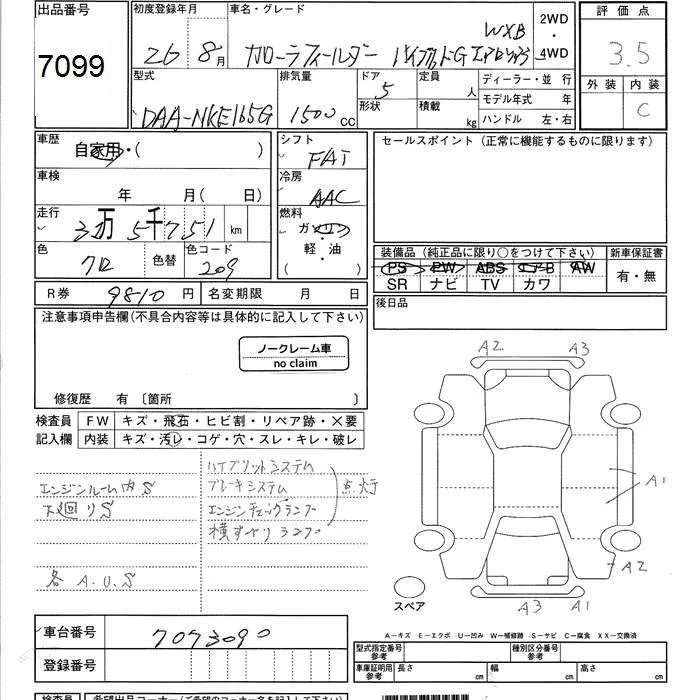 出品番号 初度登録年月 車名・グレード 2WD ・ 4WD 評価点
7099 26 8月 カローラフィールダー ハイブリッドG エアロツアラー WXB 3.5
型式 排気量 ドア 定員 人 ディーラー・並行 外装 内装
DAA-NKE165G 1500cc 5 形状 積載 kg モデル年式 年 C
ハンドル 左・右
車歴 自家用・( ) シフト FAT セールスポイント(正常に機能するものに限ります)
車検 年 月(日) 冷房 AAC
走行 3万5千751 km 燃料 ガソリン
色 クロ 色替 色コード 209 軽・油 ( )
装備品(純正品に限り○をつけて下さい) 新車保証書
PS PW ABS エアーB AW 有・無
SR ナビ TV カワ
R券 9810円 名変期限 月 日 後日品
注意事項申告欄(不具合内容等は具体的に記入して下さい)
ノークレーム車
no claim
修復歴 有〔箇所 〕
検査員 FW キズ・飛石・ヒビ割・リペア跡・×要
記入欄 内装 キズ・汚レ・コゲ・穴・スレ・キレ・破レ
A2 A3
ハイブリットシステム
エンジンルーム内S ブレーキシステム 点灯
下廻りS エンジンチェックランプ
横すべりランプ
A1
A2
各A.U.S
スペア A3 A1
車台番号 7073090
A-キズ E-エクボ U-凹み W-補修跡 S-サビ C-腐食 XX-交換済
登録番号 型式指定番号 参考 種別区分番号 参考
車庫証明用 参考 長さ cm 幅 cm 高さ cm
検査員 希望出品コーナー(ご希望のコーナー名をご記入下さい)